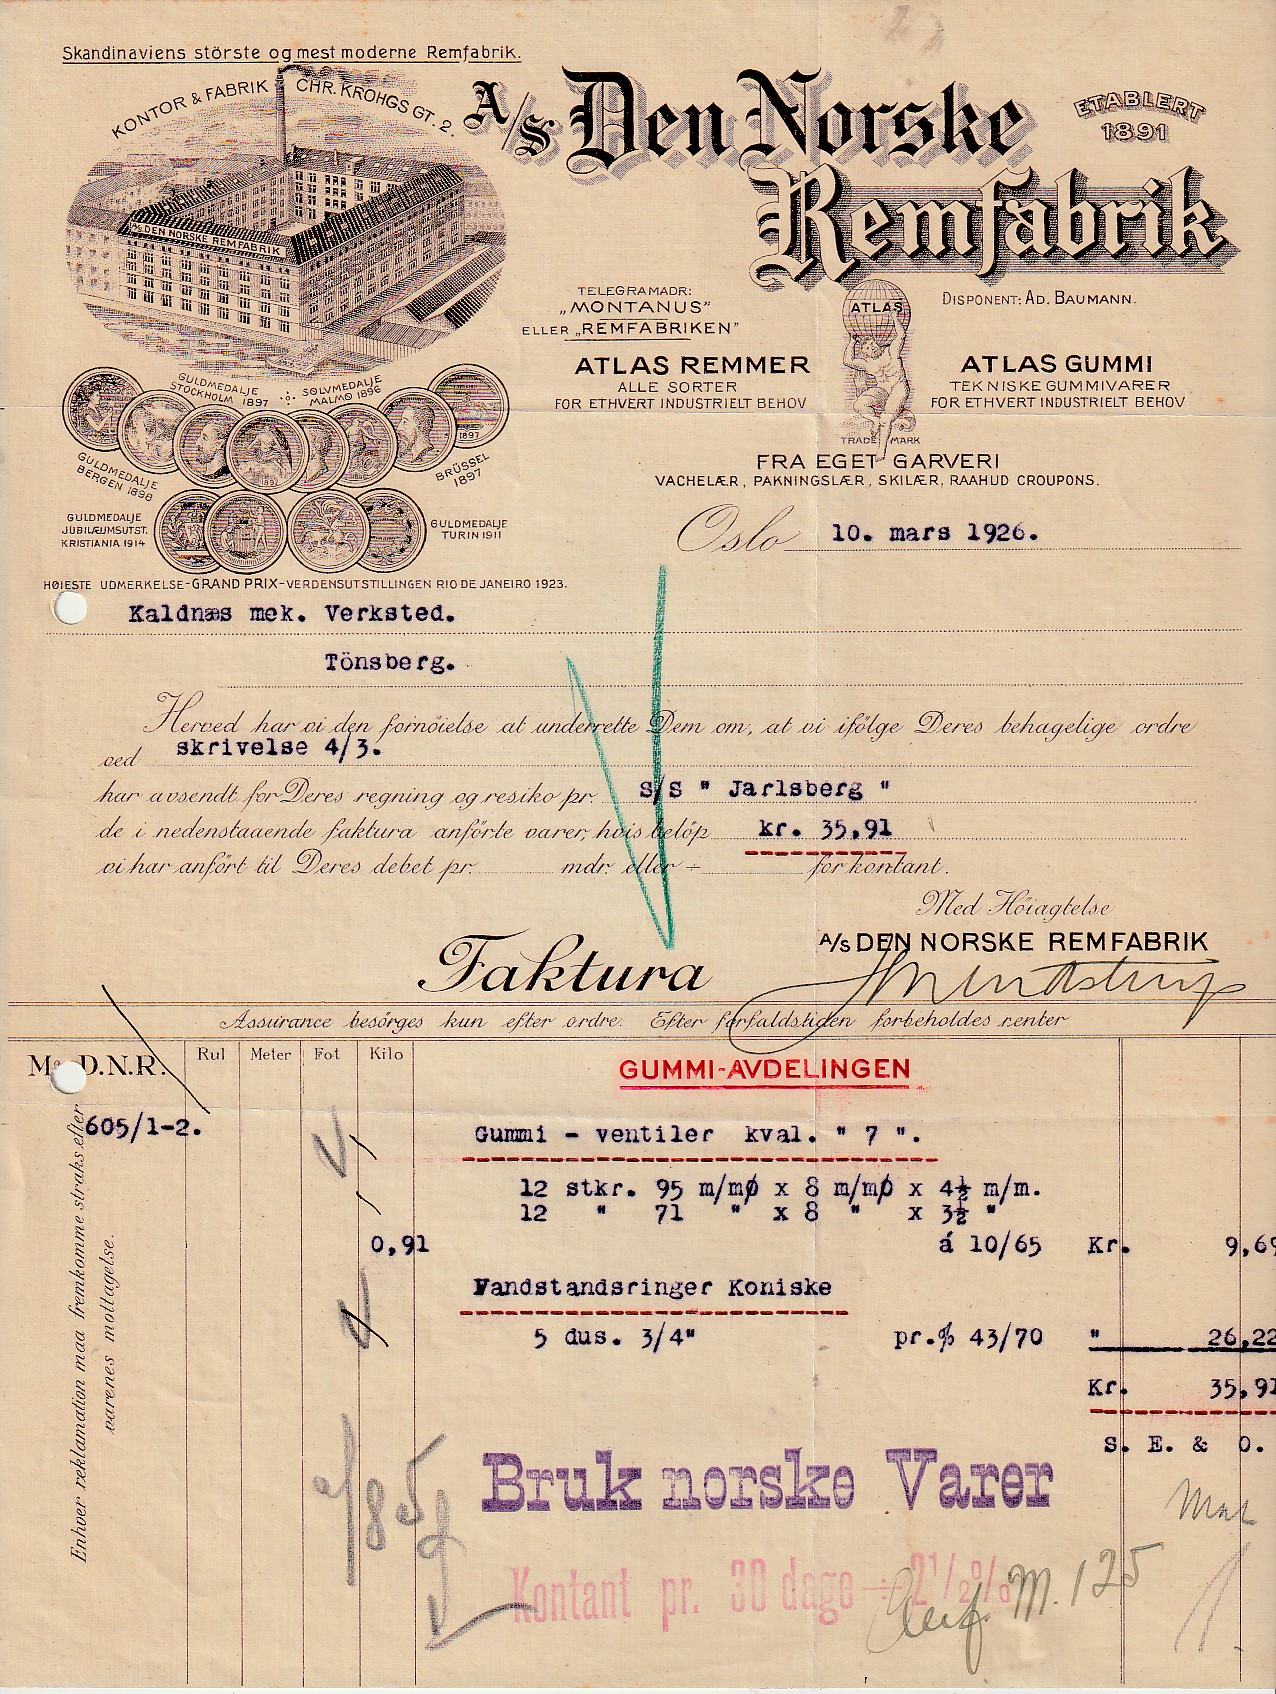 Skandinaviens störste og mest moderne Remfabrik.
KONTOR & FABRIK CHR. KROHGS GT. 2.
A/S DEN NORSKE REMFABRIK
A/S Den Norske
Remfabrik
ETABLERT
1891
TELEGRAMADR:
„MONTANUS”
ELLER „REMFABRIKEN”
DISPONENT: AD. BAUMANN.
ATLAS
ATLAS REMMER
ALLE SORTER
FOR ETHVERT INDUSTRIELT BEHOV
ATLAS GUMMI
TEKNISKE GUMMIVARER
FOR ETHVERT INDUSTRIELT BEHOV
TRADE MARK
FRA EGET GARVERI
VACHELÆR, PAKNINGSLÆR, SKILÆR, RAAHUD CROUPONS.
GULDMEDALJE
STOCKHOLM 1897
SØLVMEDALJE
MALMØ 1896
GULDMEDALJE
BERGEN 1898
BRÜSSEL
1897
1897
GULDMEDALJE
JUBILÆUMSUTST.
KRISTIANIA 1914
GULDMEDALJE
TURIN 1911
HØIESTE UDMERKELSE-GRAND PRIX-VERDENSUTSTILLINGEN RIO DE JANEIRO 1923.
Oslo 10. mars 1926.
Kaldnæs mek. Verksted.
Tönsberg.
Herved har vi den fornöielse at underrette Dem om, at vi ifölge Deres behagelige ordre
ved skrivelse 4/3.
har avsendt for Deres regning og resiko pr. S/S " Jarlsberg "
de i nedenstaaende faktura anförte varer, hvis belöp kr. 35,91
vi har anfört til Deres debet pr. mdr. eller ÷ for kontant.
Med Höiagtelse
A/S DEN NORSKE REMFABRIK
Faktura
Assurance besörges kun efter ordre. Efter forfaldstiden forbeholdes renter
D.N.R. Rul Meter Fot Kilo
GUMMI-AVDELINGEN
605/1-2.
Gummi - ventiler kval. " 7 ".
12 stkr. 95 m/mø x 8 m/mø x 4½ m/m.
12 " 71 " x 8 " x 3½ "
0,91 á 10/65 Kr. 9,69
Vandstandsringer Koniske
5 dus. 3/4" pr.% 43/70 " 26,22
Kr. 35,91
S. E. & O.
Enhver reklamation maa fremkomme straks efter
varenes mottagelse.
Bruk norske Varer
Kontant pr. 30 dage ÷ 2 1/2 %
M. 125